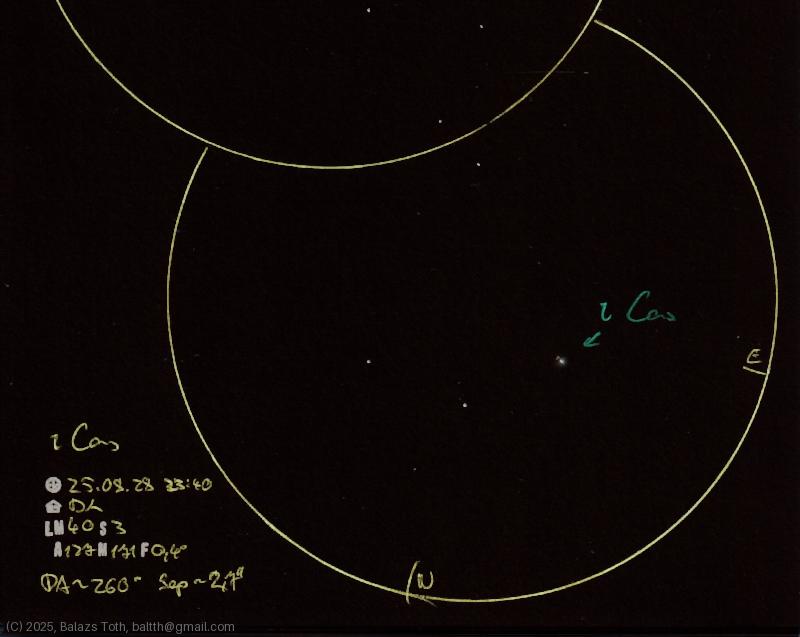 ι Cas
E
ι Cas
25.08.28 23:40
DL
LM 40 S 3
A127 M171 F0,4°
PA~260° Sep~2,7"
N
(C) 2025, Balazs Toth, baltth@gmail.com